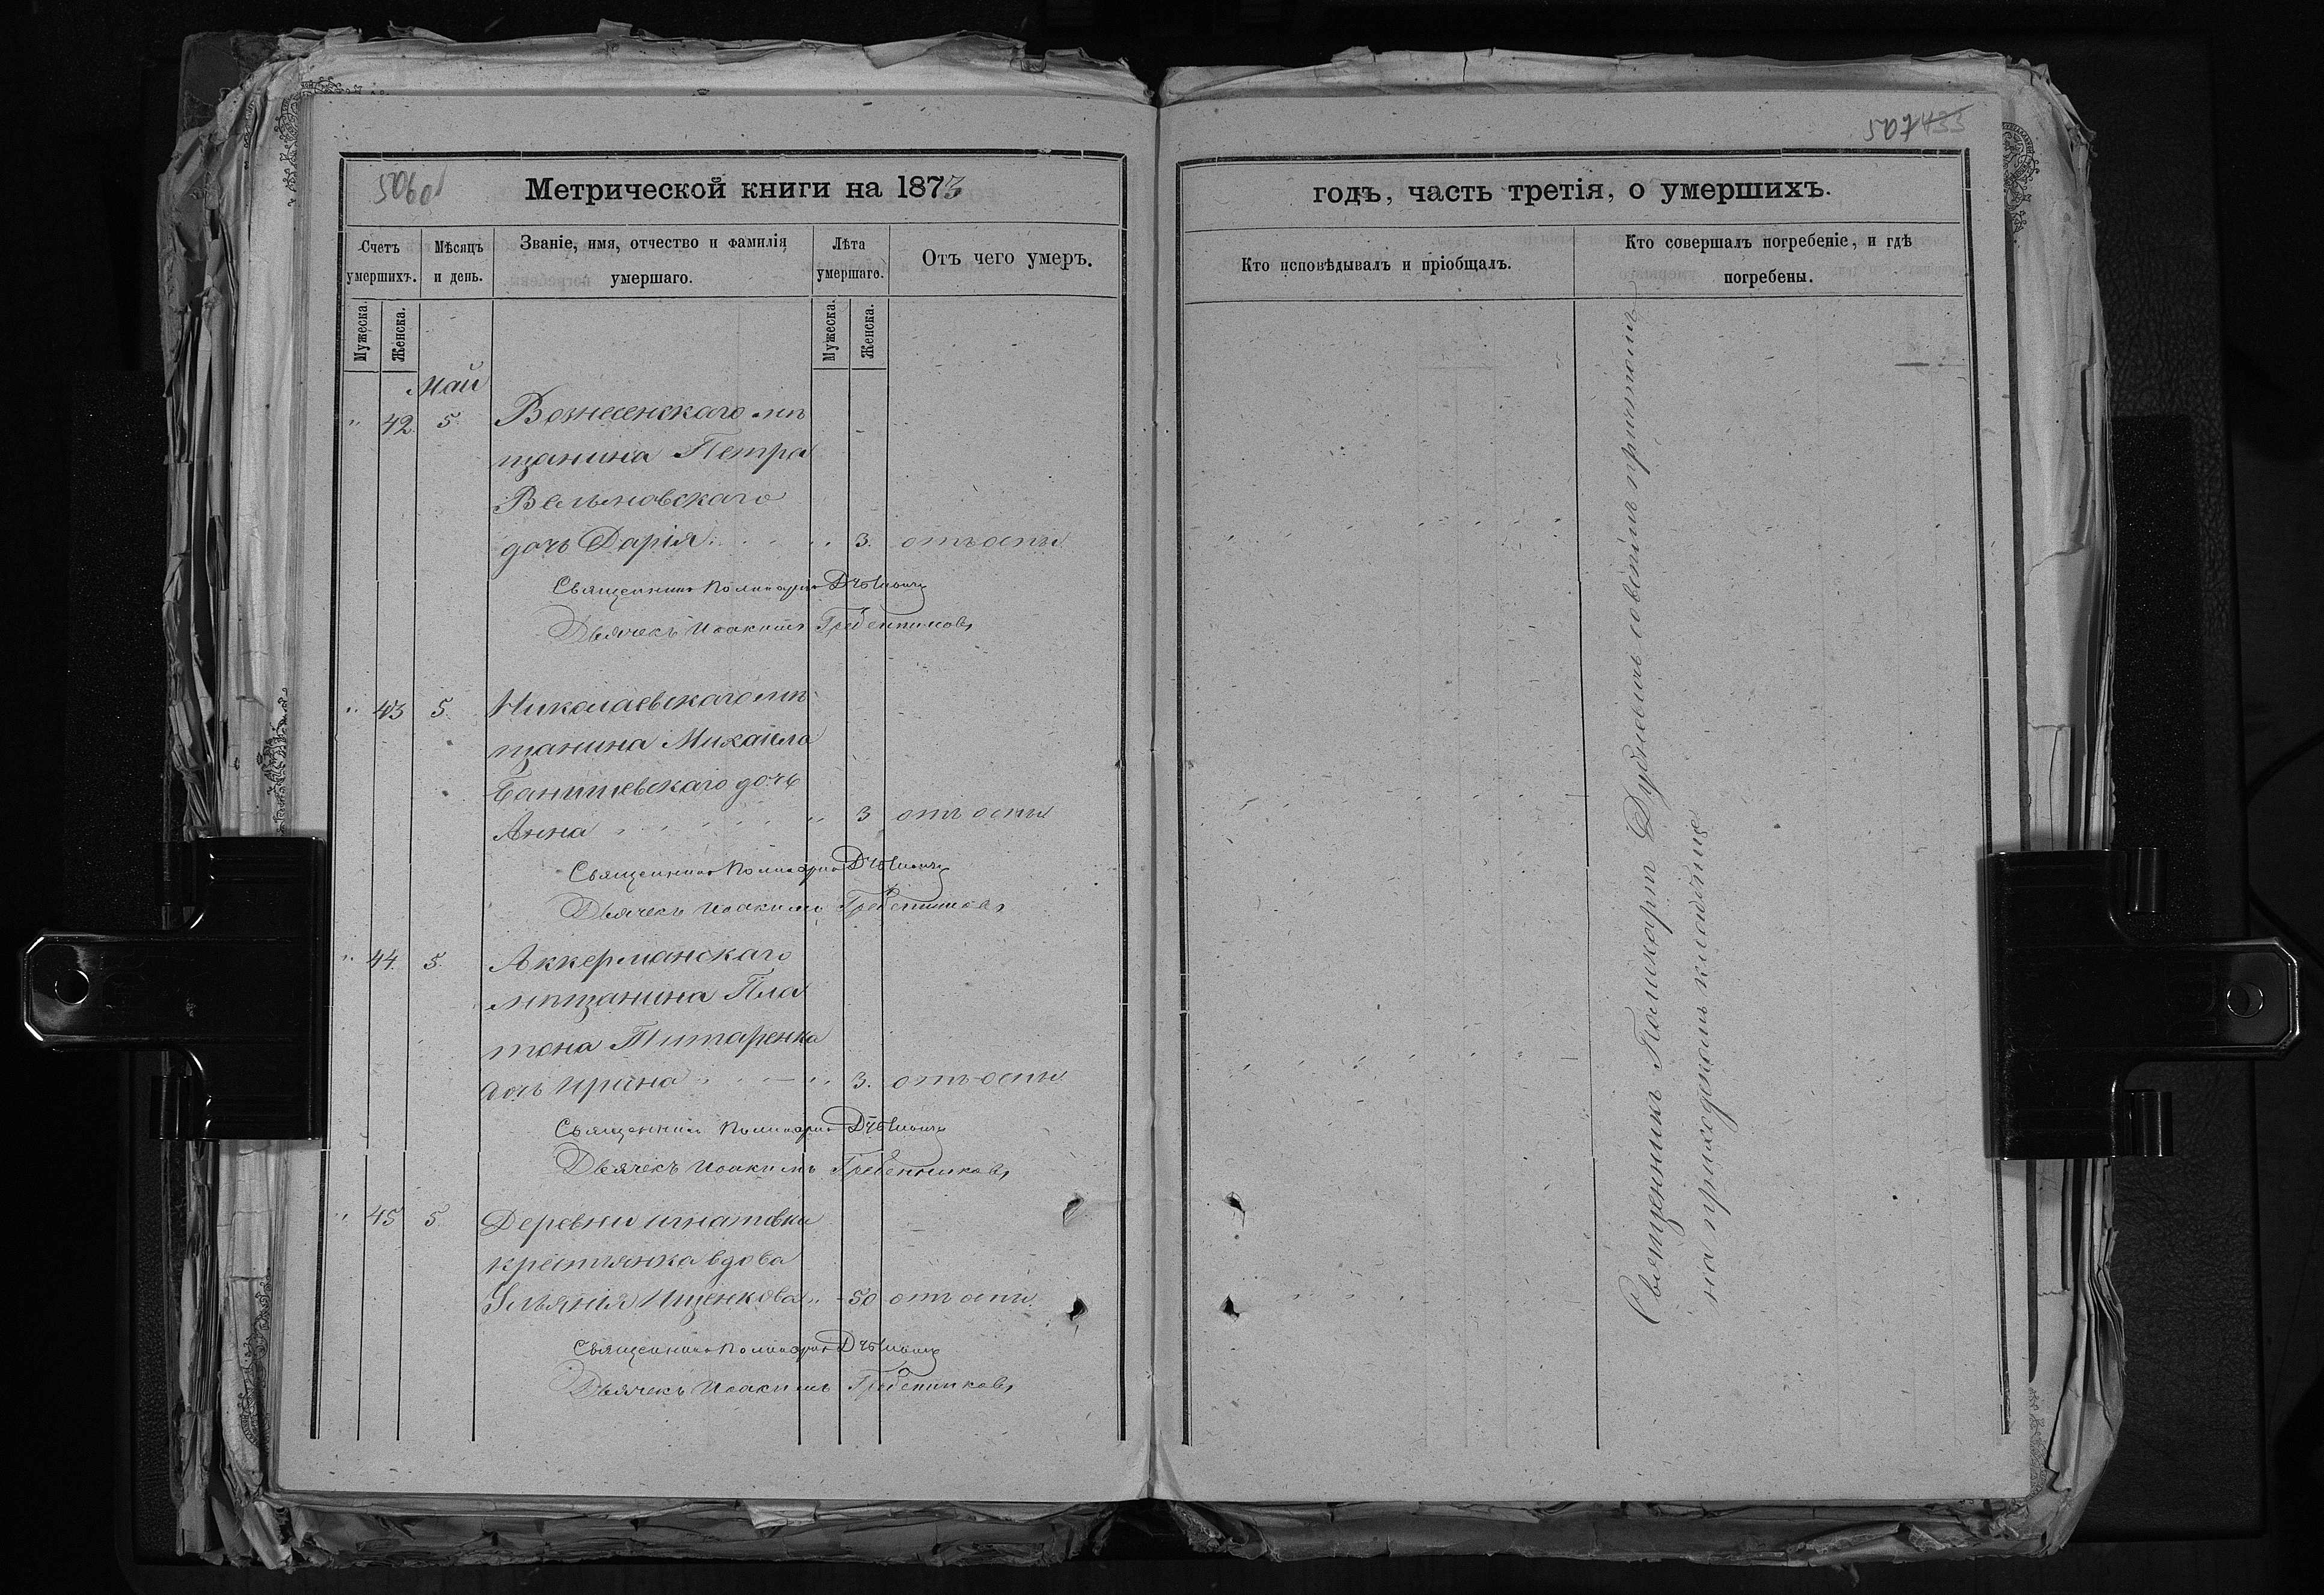 506об
Метрической книги на 1873
Счетъ умершихъ.
Мѣсяцъ и день.
Званіе, имя, отчество и фамилія умершаго.
Лѣта умершаго.
Отъ чего умеръ.
Мужеска.
Женска.
Мужеска.
Женска.
Май
" 42. 5. Вознесенскаго мѣ
щанина Петра
Вельновскаго
дочь Дарія " 3. отъ оспы
Священникъ Поликарпъ
Дьячекъ Иоакимъ Гребенниковъ
" 43 5. Николаевскаго мѣ
щанина Михаила
дочь
Анна " 3 отъ оспы
Священникъ Поликарпъ
Дьячекъ Иоакимъ Гребенниковъ
" 44. 5. Аккерманскаго
мѣщанина Пла
тона Титаренка
дочь Ирина " 3. отъ оспы
Священникъ Поликарпъ
Дьячекъ Иоакимъ Гребенниковъ
" 45 5 Деревни Игнатовки
крестьянка вдова
Ульянія Ищенкова " 50 отъ оспы.
Священникъ Поликарпъ
Дьячекъ Иоакимъ Гребенниковъ
507 433
годъ, часть третія, о умершихъ.
Кто исповѣдывалъ и пріобщалъ.
Кто совершалъ погребеніе, и гдѣ погребены.
Священникъ Поликарпъ съ причтомъ
на приходскомъ кладбищѣ